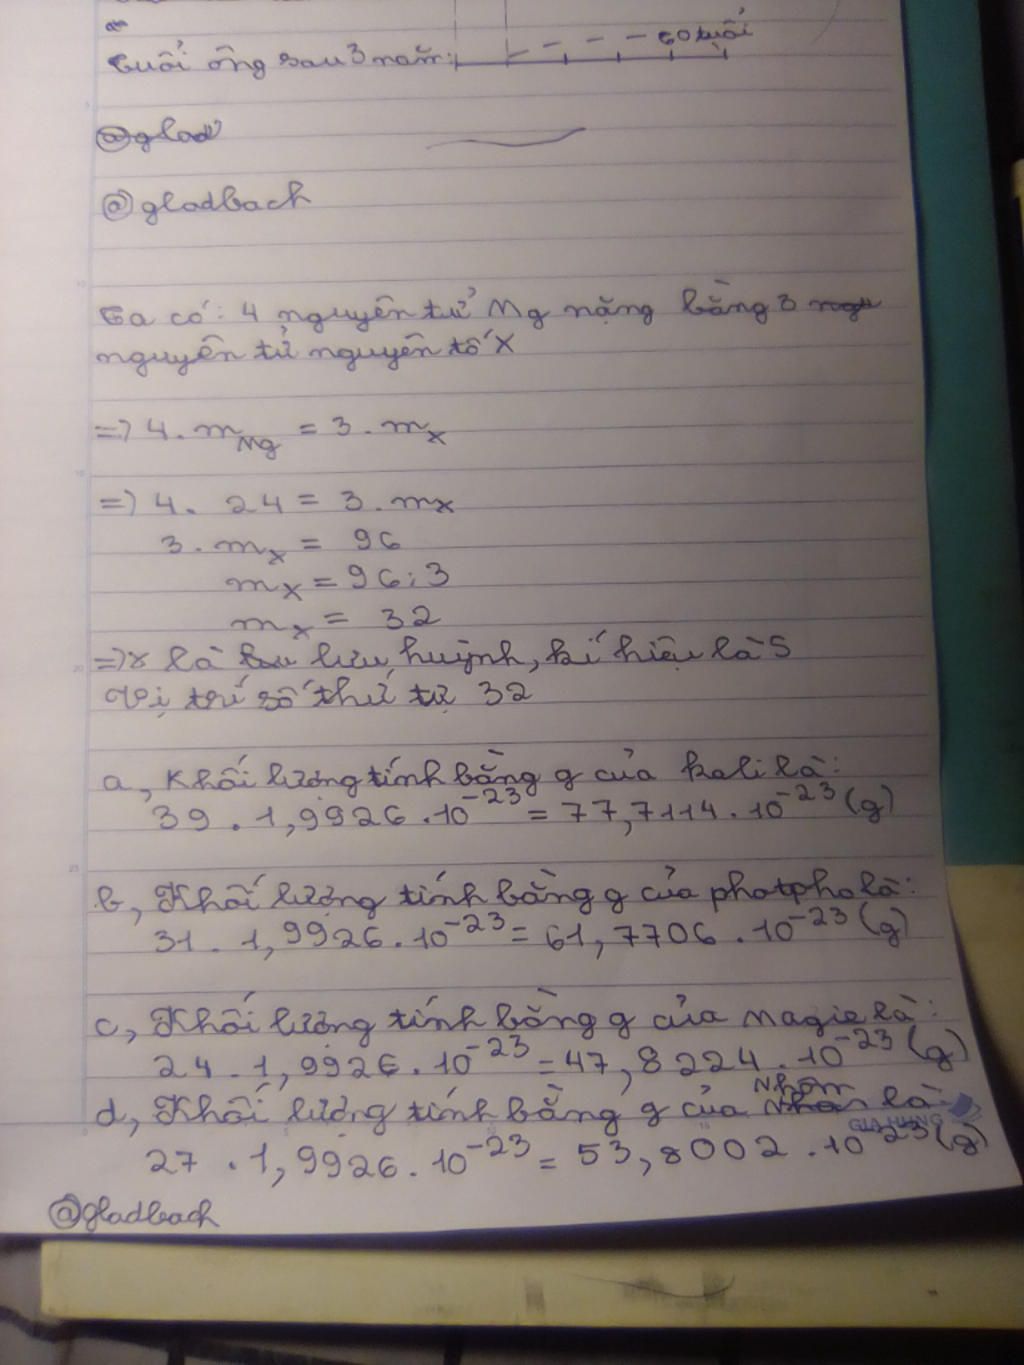 Tuổi ông sau 3 năm:
60 tuổi
@glad
@gladbach
Ta có: 4 nguyên tử Mg nặng bằng 3
nguyên tử nguyên tố X
=> 4. mMg = 3. mx
=> 4. 24 = 3. mx
3. mx = 96
mx = 96:3
mx = 32
=> x là lưu huỳnh, kí hiệu là S
Vị trí số thứ tự 32
a, Khối lượng tính bằng g của kali là:
39 . 1,9926 . 10⁻²³ = 77,7114 . 10⁻²³ (g)
b, Khối lượng tính bằng g của photpho là:
31 . 1,9926 . 10⁻²³ = 61,7706 . 10⁻²³ (g)
c, Khối lượng tính bằng g của Magie là:
24 . 1,9926 . 10⁻²³ = 47,8224 . 10⁻²³ (g)
d, Khối lượng tính bằng g của Nhôm là:
GIA HƯNG
27 . 1,9926 . 10⁻²³ = 53,8002 . 10⁻²³ (g)
@gladbach